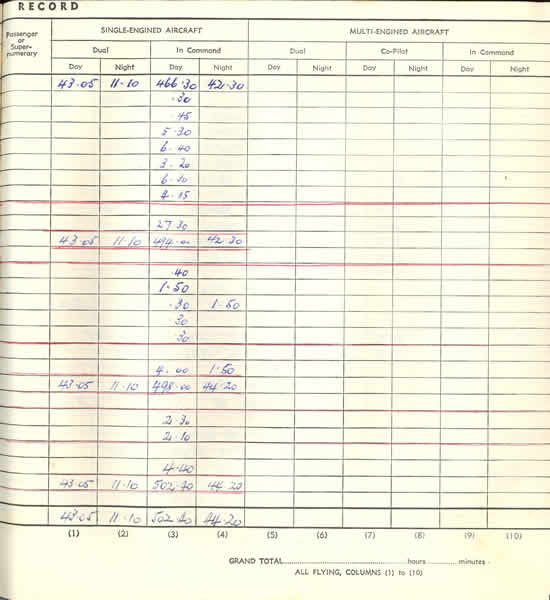 RECORD
Passenger or Super-numerary
SINGLE-ENGINED AIRCRAFT MULTI-ENGINED AIRCRAFT
Dual In Command Dual Co-Pilot In Command
Day Night Day Night Day Night Day Night Day Night
43·05 11·10 466·30 42·30
·30
·45
5·30
6·40
3·20
6·30
4·15
27·30
43·05 11·10 494·00 42·30
·40
1·50
·30 1·50
·30
·30
4·00 1·50
43·05 11·10 498·00 44·20
2·30
2·10
4·40
43·05 11·10 502·40 44·20
43·05 11·10 502·40 44·20
(1) (2) (3) (4) (5) (6) (7) (8) (9) (10)
GRAND TOTAL..............................hours..............minutes.
ALL FLYING, COLUMNS (1) to (10)